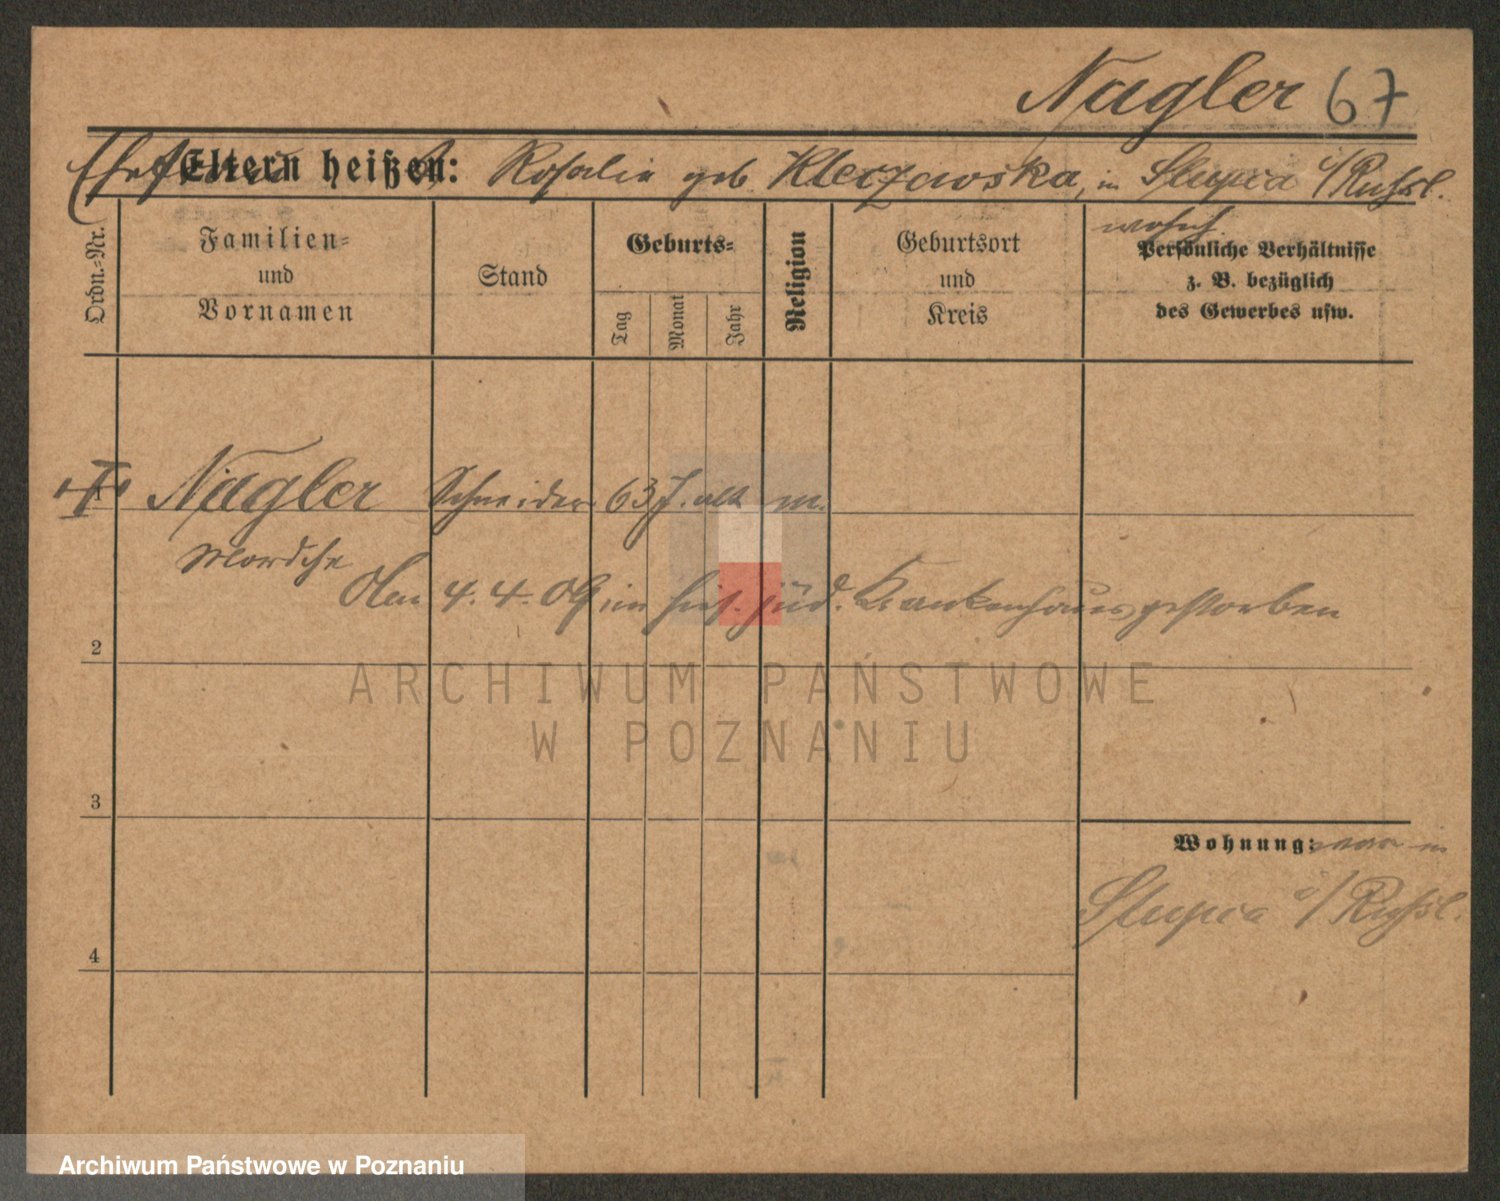 Nagler 67
Ehefrau
Eltern heißen: Rosalie geb Kleczewska, in Slupca i/Russl.
wohnh.
Ordn.-Nr.
Familien-
und
Vornamen
Stand
Geburts-
Tag
Monat
Jahr
Religion
Geburtsort
und
Kreis
Persönliche Verhältnisse
z. B. bezüglich
des Gewerbes usw.
1 Nagler Schneider 63 J. alt m.
Mordche
Am 4. 4. 09 im hies. jüd. Krankenhaus gestorben
2
ARCHIWUM PAŃSTWOWE
W POZNANIU
3
Wohnung: war in
Slupca i/Russl.
4
Archiwum Państwowe w Poznaniu